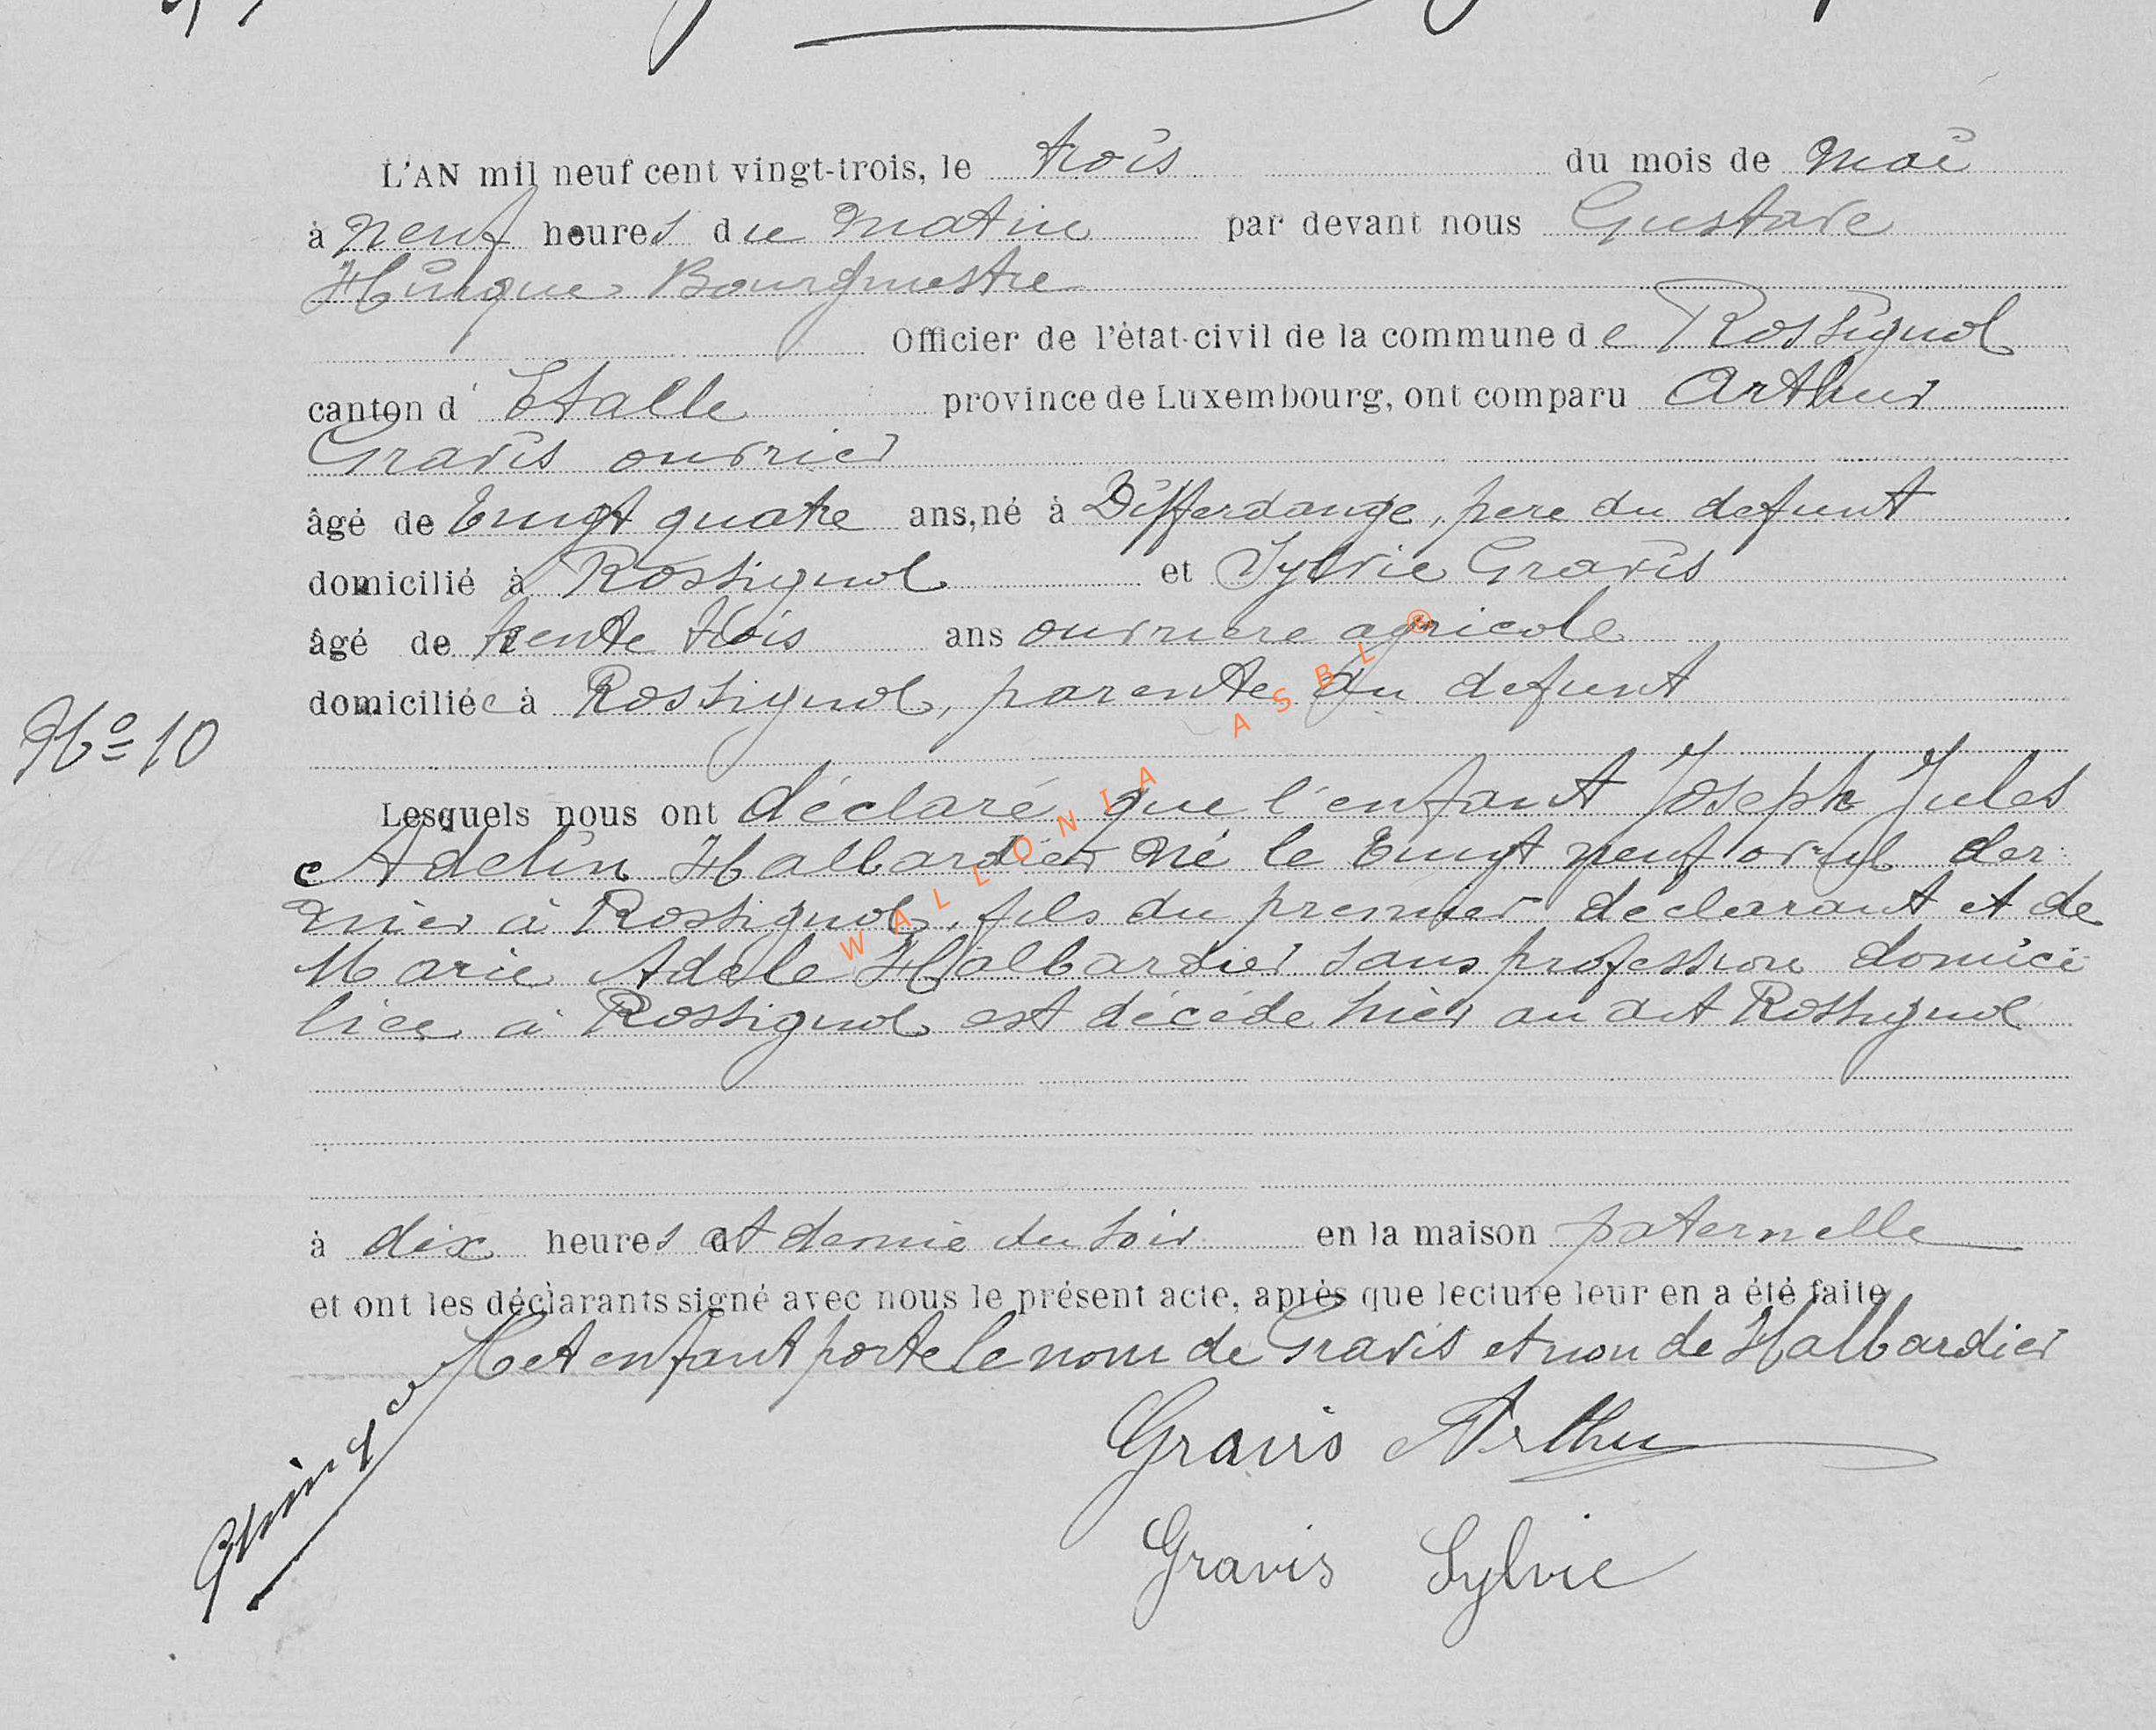 L'AN mil neuf cent vingt-trois, le trois du mois de mai
à neuf heures du matin par devant nous Gustave
Hurique Bourgmestre
Officier de l'état-civil de la commune de Rossignol
canton d'Etalle province de Luxembourg, ont comparu Arthur
Gravis ouvrier
âgé de vingt quatre ans, né à Differdange, pere du defunt
domicilié à Rossignol et Sylvie Gravis
âgé de trente trois ans ouvriere agricole
domiciliée à Rossignol, parente du defunt
No 10
Lesquels nous ont déclaré que l'enfant Joseph Jules
Adelin Halbardier né le vingt neuf avril der
nier à Rossignol, fils du premier declarant et de
Marie Adele Halbardier sans profession domici
liée à Rossignol est décédé hier au dit Rossignol
à dix heures et demie du soir en la maison paternelle
et ont les déclarants signé avec nous le présent acte, après que lecture leur en a été faite
Cet enfant porte le nom de Gravis et non de Halbardier
Gravis Arthur
Gravis Sylvie
WALLONIA ASBL ®